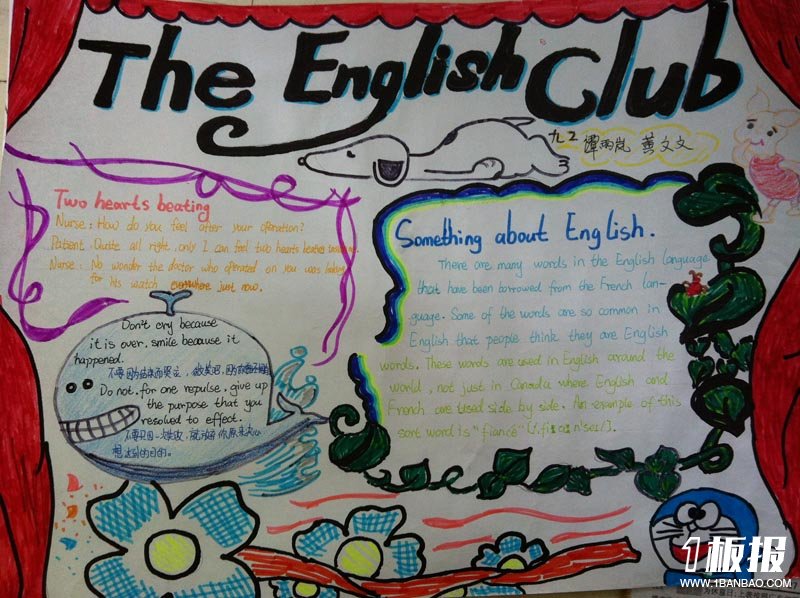 The English Club
九2 谭雨岚 黄文文
Two hearts beating
Nurse: How do you feel after your operation?
Patient: Quite all right, only I can feel two hearts beating
Nurse: No wonder the doctor who operated on you was
for his watch everywhere just now.
Something about English.
There are many words in the English language
that have been borrowed from the French lan-
guage. Some of the words are so common in
English that people think they are English
words. These words are used in English around the
world, not just in Canada where English and
French are used side by side. An example of this
sort word is "fiancé"
Don't cry because
it is over, smile because it
happened.
不要因为结束而哭泣,微笑吧,因为
Do not, for one repulse, give up
the purpose that you
resolved to effect.
不要只因一次失败,就放弃你原来决心
想达到的目的。
1板报
WWW.1BANBAO.COM